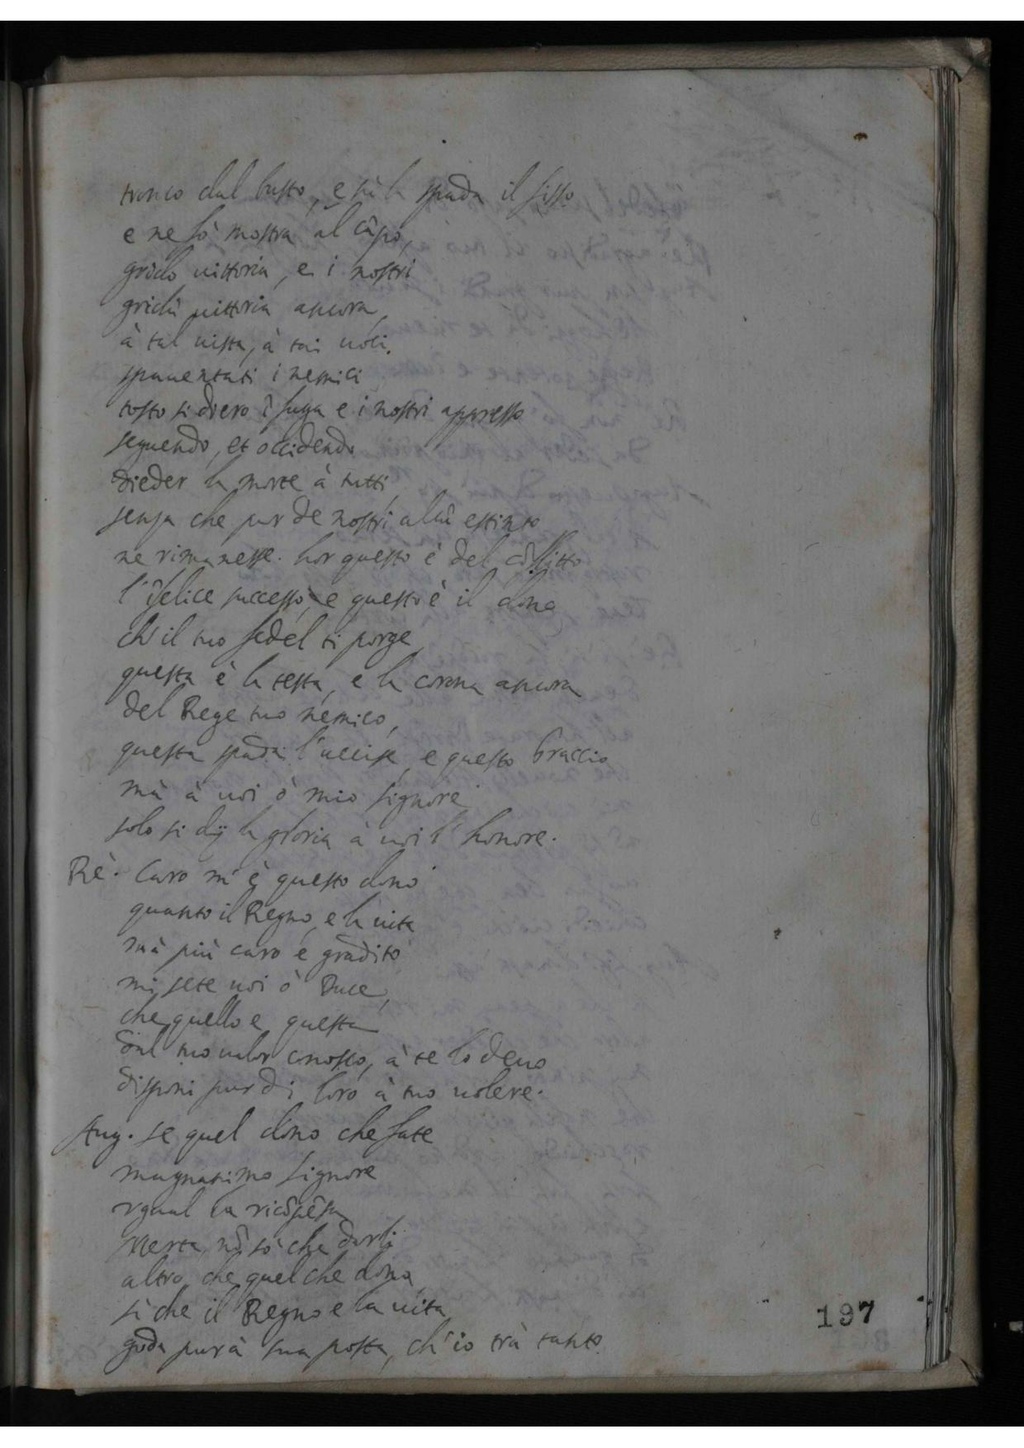 tronco dal busto, e sù la spada il fisso
e ne fò mostra al cāpo,
grido vittoria, e i nostri
gridā vittoria ancora
à tal vista, à tai voci.
spaventati i nemici
tosto si diero ī fuga e i nostri appresso
seguendo, et occidendo
dieder la morte à tutti
senza che pur de nostri alcū estinto
ne rimanesse. hor questo è del cōflitto
l'īfelice successo, e questo è il dono
ch'il tuo fedel ti porge
questa è la testa, e la corona ancora
del Rege tuo nemico,
questa spada l'uccise, e questo braccio
mà à voi ò mio signore
solo si dij la gloria à voi l'honore.
Rè. Caro m'è questo dono
quanto il Regno, e la vita
mà più caro e gradito
mi sete voi ò Duce,
che quello e questa
dal tuo valor conosco, à te lo devo
disponi pur di loro à tuo volere.
Aug. Se quel dono che fate
magnanimo signore
ugual la ricōpēsa
Merta, nō sò che darli
altro, che quel che dona
si che il Regno e la vita
goda pur à sua posta, ch'io trà tanto
197